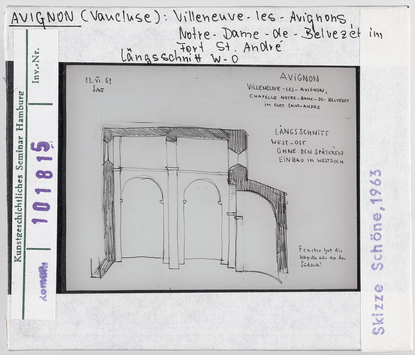 AVIGNON (Vaucluse): Villeneuve-les-Avignons,
Notre-Dame-de-Belvezét im
Fort St. André
Längsschnitt W-O
Kunstgeschichtliches Seminar Hamburg
Inv.-Nr.
101815
roman.
13. VI. 63
AVIGNON
VILLENEUVE-LES-AVIGNON,
CHAPELLE NOTRE-DAME-DE-BELVEZET
IM FORT SAINT-ANDRE
LÄNGSSCHNITT
WEST-OST
OHNE DEN SPÄTEREN
EINBAU IM WESTJOCH
Fenster hat die
Kapelle nur an der
Südseite!
Skizze Schöne, 1963